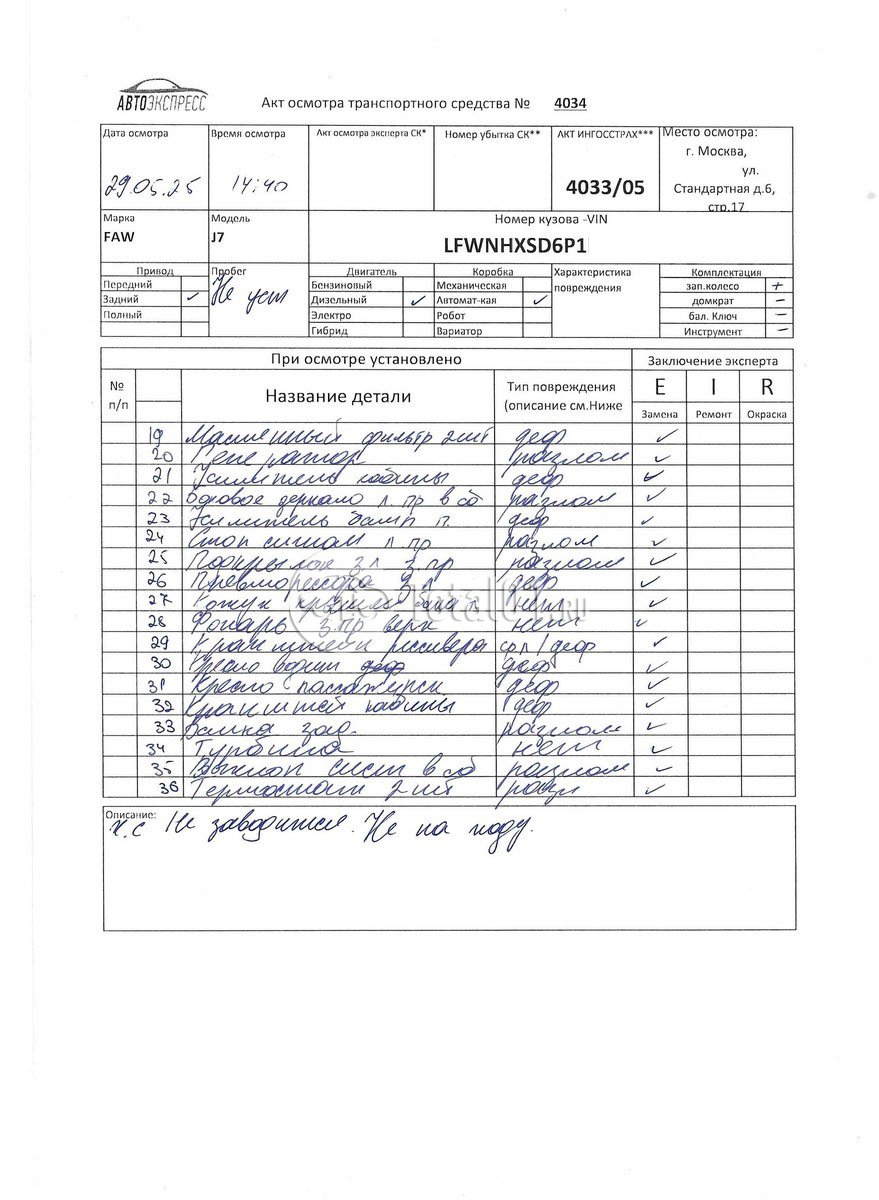 АВТОЭКСПРЕСС
Акт осмотра транспортного средства № 4034
Дата осмотра
29.05.25
Время осмотра
14:40
Акт осмотра эксперта СК*
Номер убытка СК**
АКТ ИНГОССТРАХ***
4033/05
Место осмотра:
г. Москва,
ул.
Стандартная д.6,
стр.17
Марка
FAW
Модель
J7
Номер кузова -VIN
LFWNHXSD6P1
Привод
Передний
Задний ✓
Полный
Пробег
Не уст
Двигатель
Бензиновый
Дизельный ✓
Электро
Гибрид
Коробка
Механическая
Автомат-кая ✓
Робот
Вариатор
Характеристика
повреждения
Комплектация
зап.колесо +
домкрат –
бал. Ключ –
Инструмент –
При осмотре установлено
Заключение эксперта
№
п/п
Название детали
Тип повреждения
(описание см.Ниже
E I R
Замена Ремонт Окраска
19 Масленный фильтр 2шт деф ✓
20 Генератор разлом ✓
21 Усилитель кабины деф ✓
22 Боковое зеркало л пр в сб разлом ✓
23 Усилитель бамп п. деф ✓
24 Стоп сигнал л пр разлом ✓
25 Подкрылок з л з пр разлом ✓
26 з л деф ✓
27 Кожух бака л нет ✓
28 Фонарь з.пр верх нет ✓
29 Кронштейн рессивера срл/деф ✓
30 Кресло водит деф ✓
31 Кресло пассажирск деф ✓
32 Кронштей кабины деф ✓
33 Балка зад. разлом ✓
34 Турбина нет ✓
35 Выхлоп сист в сб разлом ✓
36 Термостат 2 шт ✓
Описание:
Х.С Не заводится. Не на ходу.
TotalOt.RU